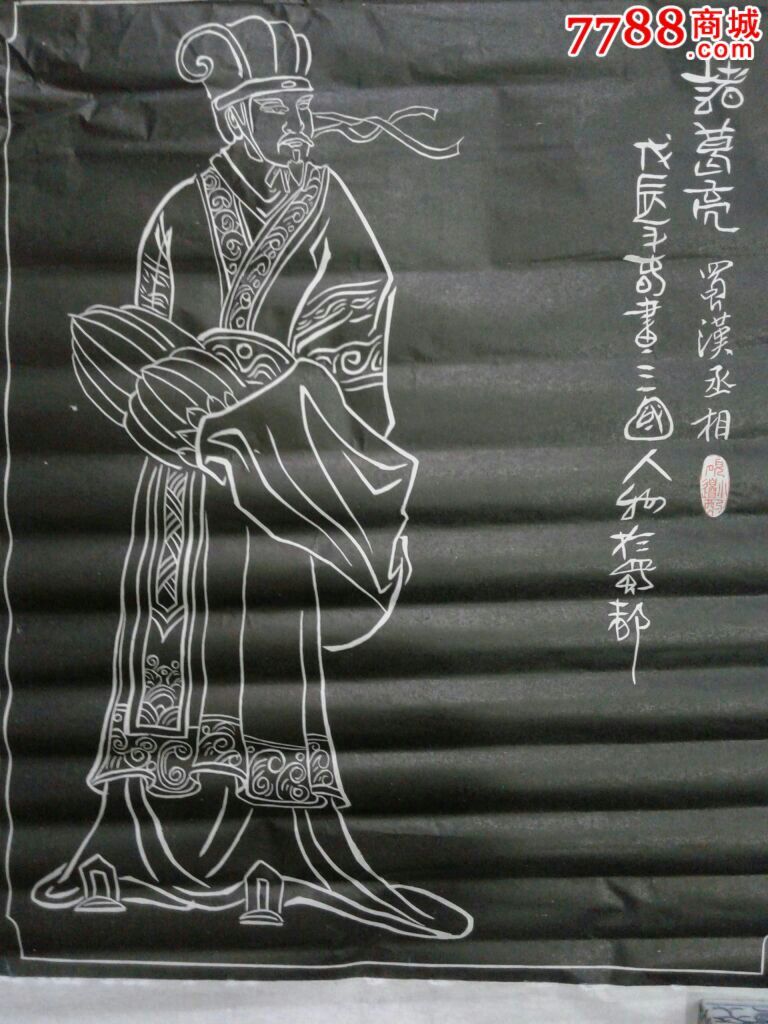 7788商城
.com
諸葛亮 蜀漢丞相
戊辰年 畫三國人物於蜀都